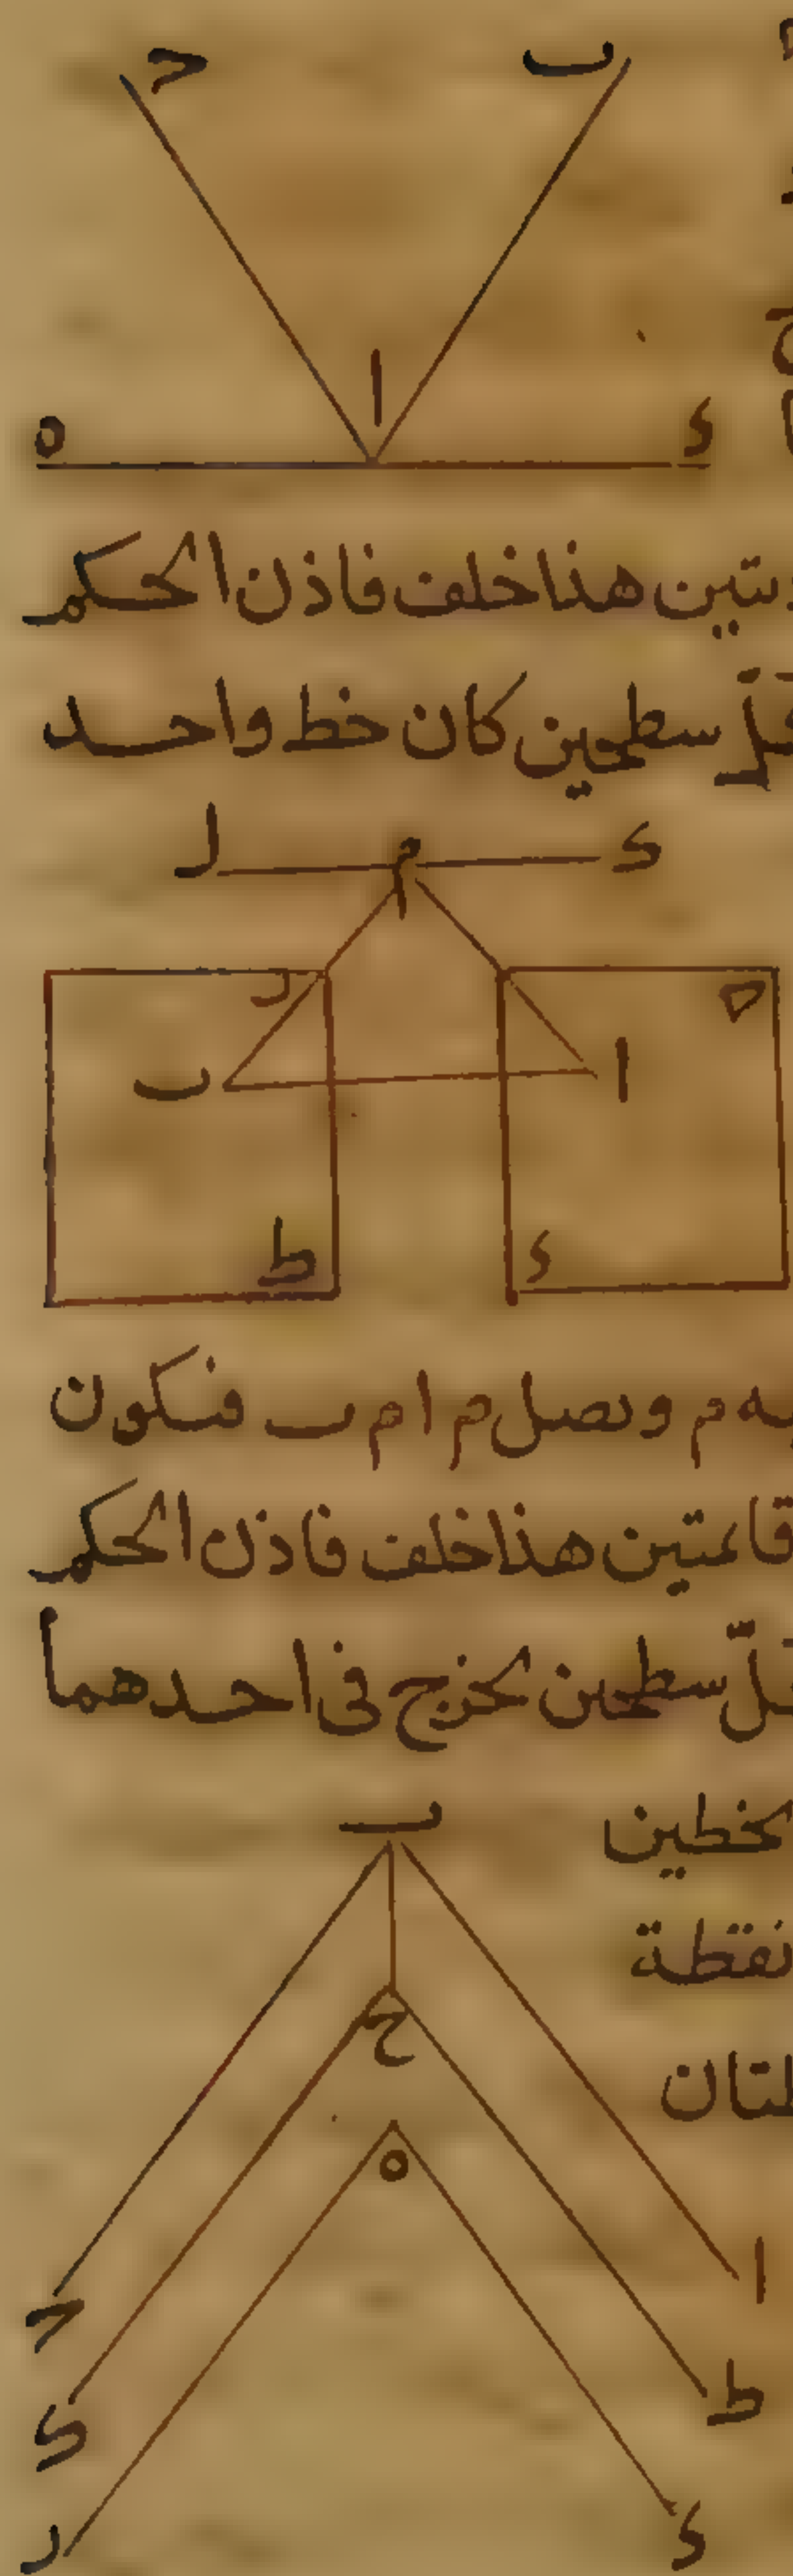 ب ح
ا
ء ه
هذا خلف فاذن الحكم
سطحين كان خط واحد
ك م ل
ه ر
ا ب
ء ط
م ونصل م ا م ب فىكون
قائمتين هذا خلف فاذن الحكم
سطحين يخرج فى احدهما
ب
نقطة
ح
ه
ا
ح
ط
ك
ء
ر